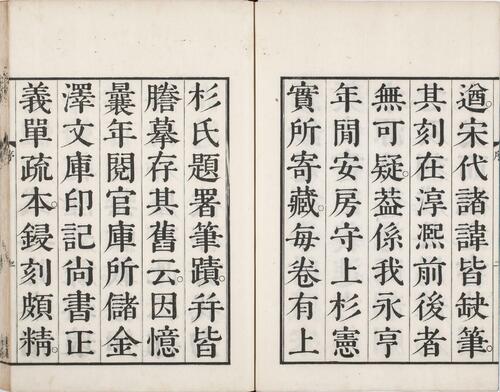 遒。宋代諸諱皆缺筆。
其刻在淳熈前後者
無可疑。葢係我永亨
年閒安房守上杉憲
實所寄藏。每卷有上
杉氏題署筆蹟。幷皆
謄摹存其舊云。因憶
曩年閱官庫所儲金
澤文庫印記尙書正
義單疏本。鋟刻頗精。
序